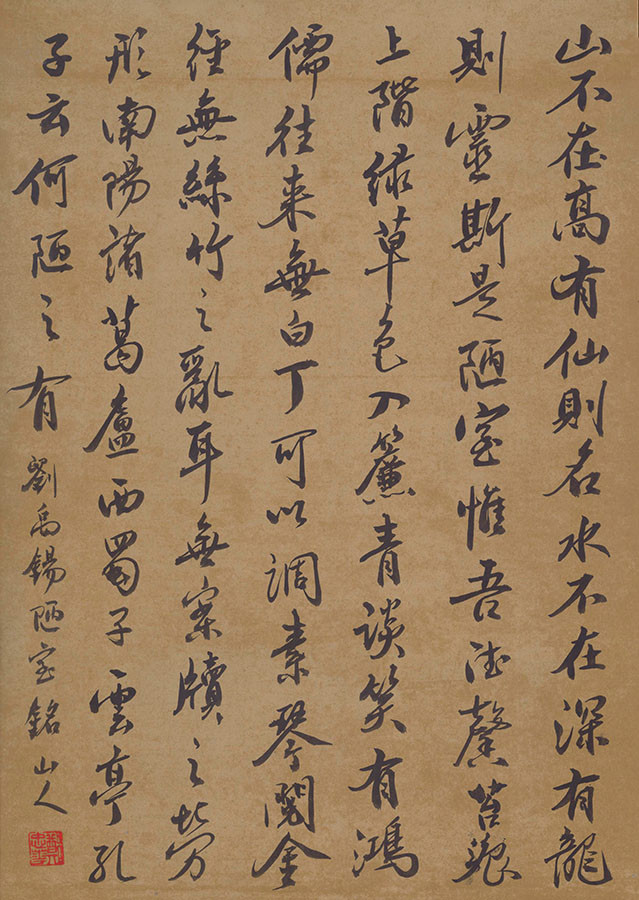 山不在高有仙則名水不在深有龍
則靈斯是陋室惟吾德馨苔痕
上階緑草色入簾青談笑有鴻
儒往来無白丁可以調素琴閱金
經無絲竹之亂耳無案牘之勞
形南陽諸葛廬西蜀子雲亭孔
子云何陋之有 劉禹錫陋室銘山人